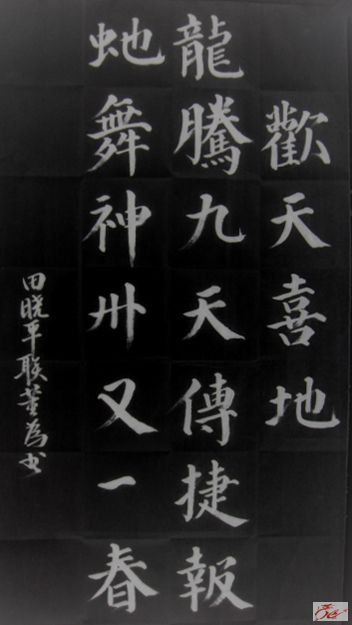 歡天喜地
龍騰九天傳捷報
虵舞神州又一春
田晓平联董为书